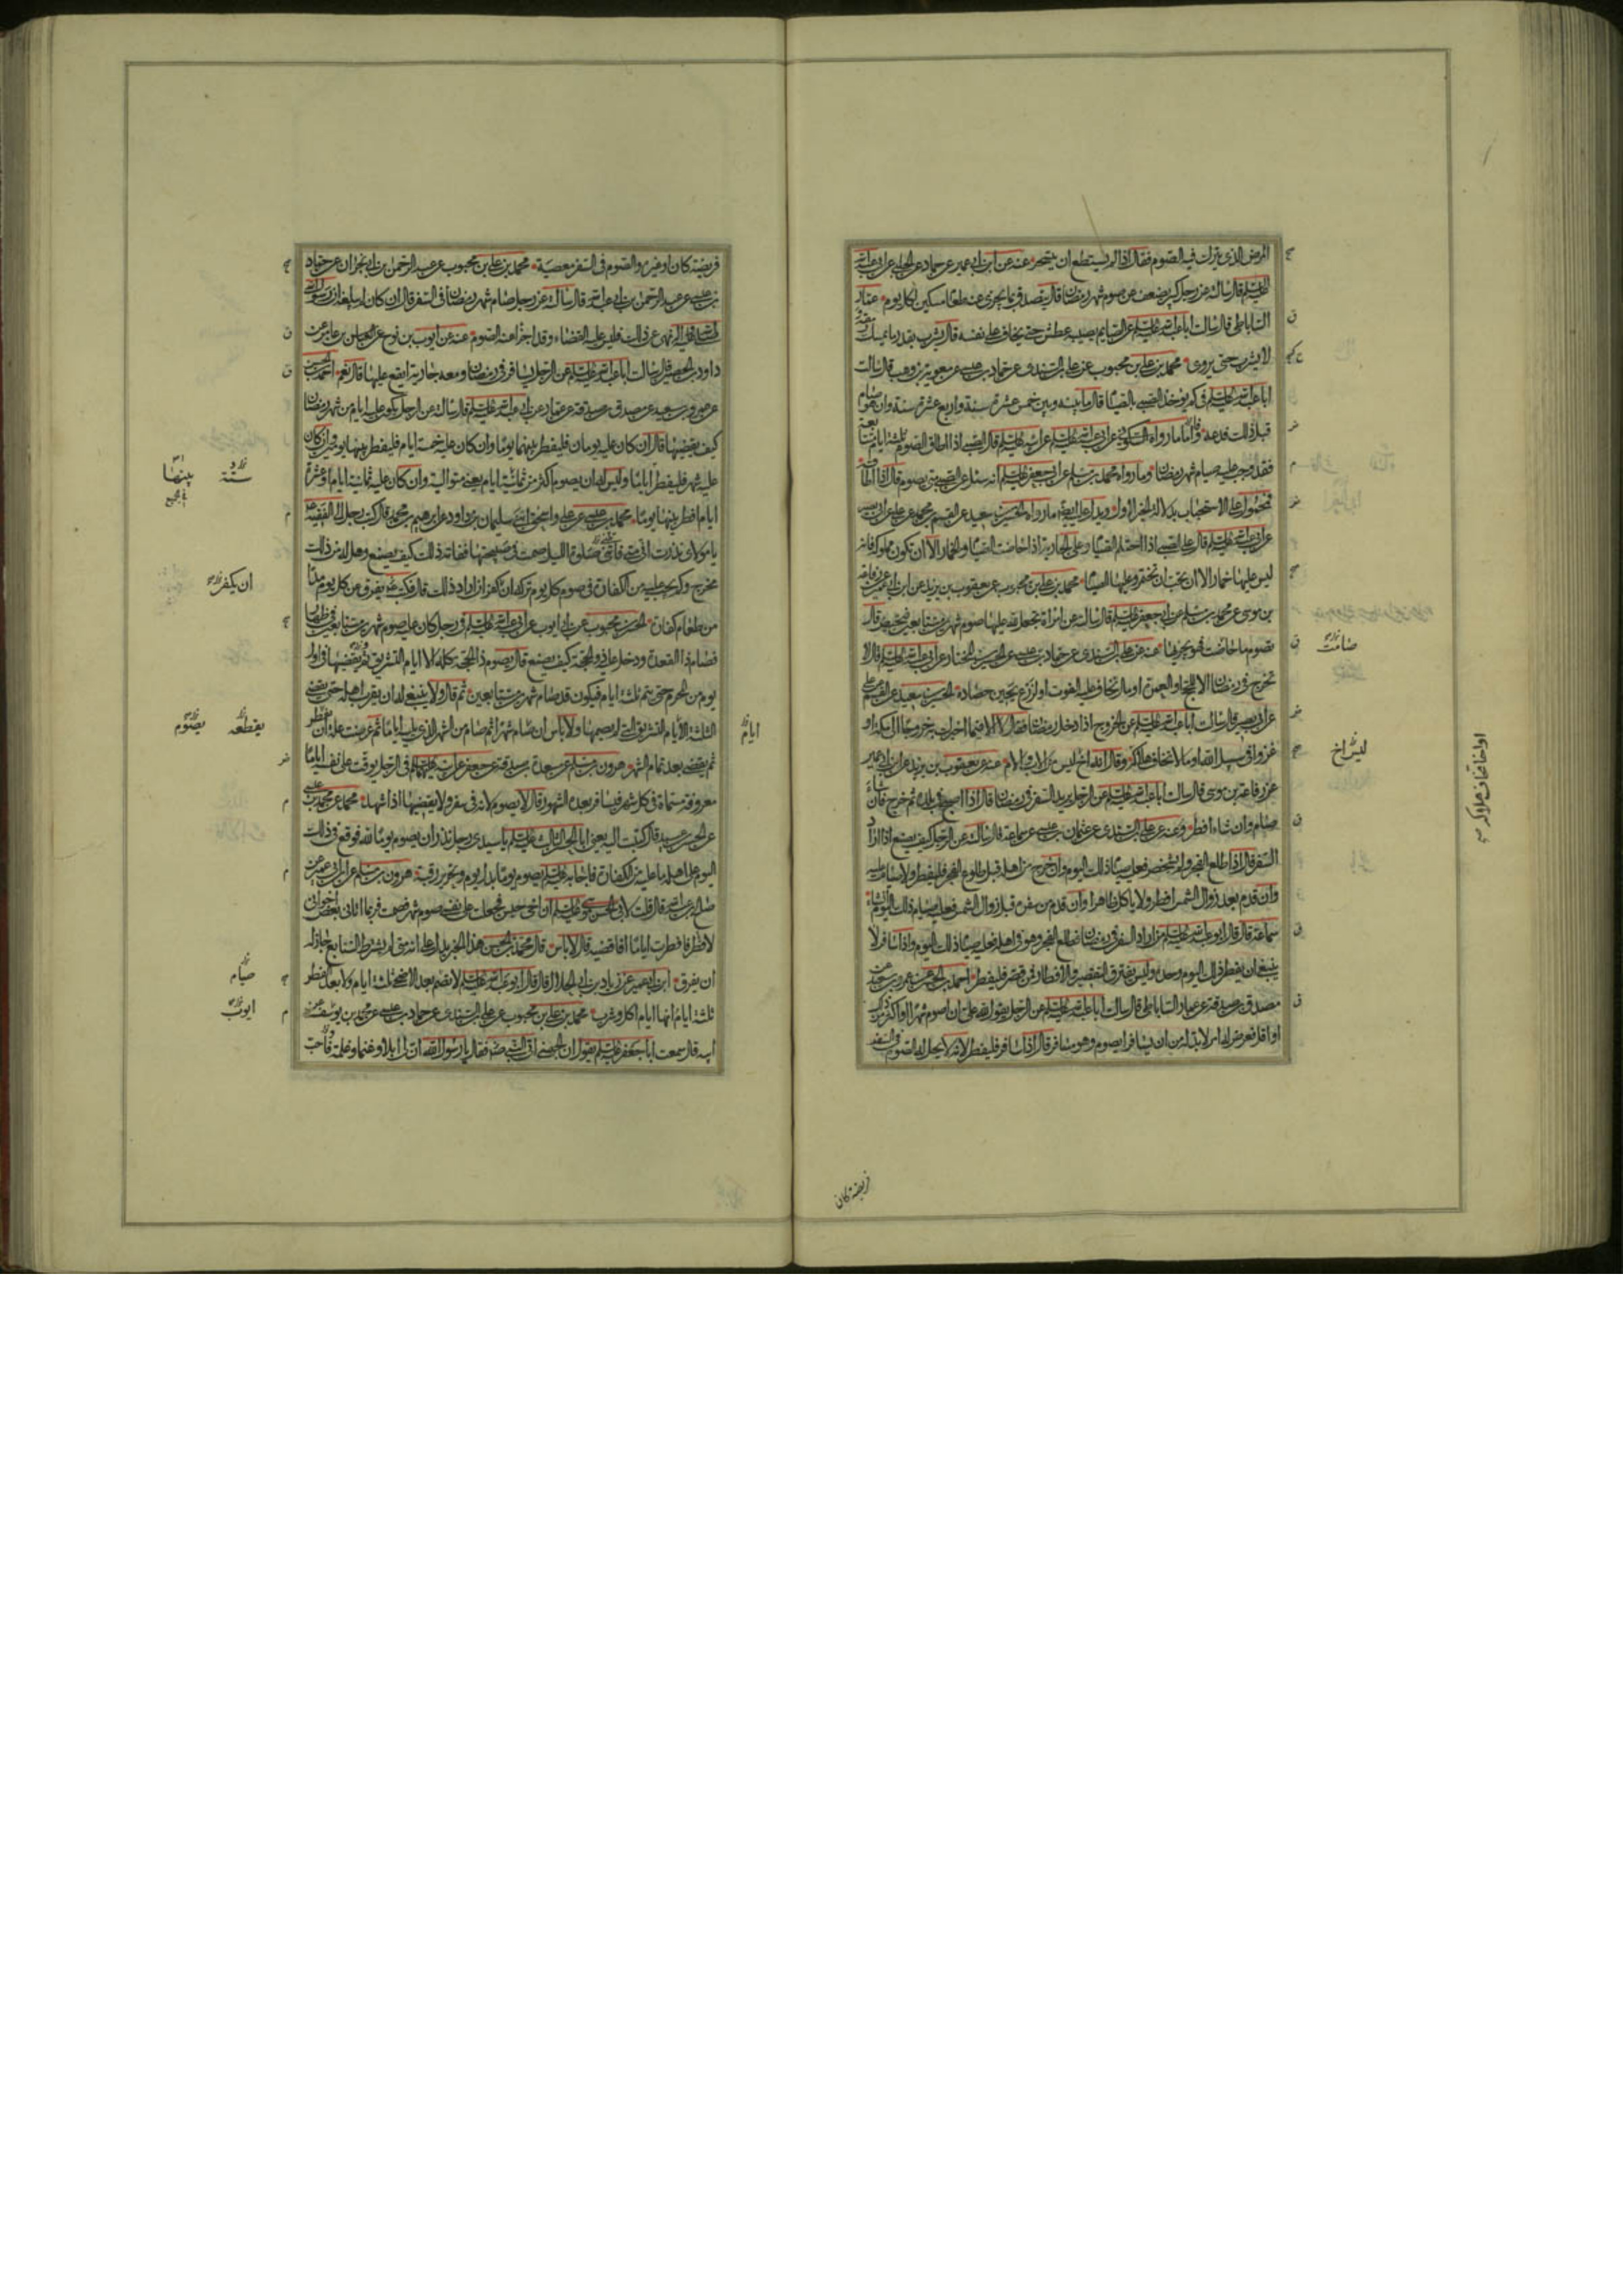 المرض الذى يترك فيه الصوم فقال اذا لم يستطع ان يتسحر عنه عن ابن ابى عمير عن حماد عن الحلبى عن ابى عبد الله
عليه السلم قال سالته عن رجل كبير يضعف عن صوم شهر رمضان قال يتصدق بما يجزى عنه طعام مسكين لكل يوم عمار
الساباطى قال سالت ابا عبد الله عليه السلم عن الصايم يصيبه عطش حتى يخاف على نفسه قال يشرب بقدر ما يمسك رمقه و
لا يشرب حتى يروى محمد بن على بن محبوب عن على بن السندى عن حماد بن عيسى عن معوية بن وهب قال سالت
ابا عبد الله عليه السلم فى كم يؤخذ الصبى بالصيام قال ما بينه وبين خمس عشرة سنة واربع عشرة سنة وان هو صام
قبل ذلك فدعه فاما ما رواه السكونى عن ابى عبد الله عليه السلم عن ابيه عليه السلم قال الصبى اذا اطاق الصوم ثلثة ايام متتابعة
فقد وجب عليه صيام شهر رمضان وما رواه محمد بن مسلم عن ابى جعفر عليه السلم انه سئل عن الصبى متى يصوم قال اذا اطاقه
فمحمول على الاستحباب بدلالة الخبر الاول ويدل عليه ايضا ما رواه الحسين بن سعيد عن القسم بن محمد عن على عن ابى بصير
عن ابى عبد الله عليه السلم قال على الصبى اذا احتلم الصيام وعلى الجارية اذا حاضت الصيام والخمار الا ان تكون مملوكة فانه
ليس عليها خمار الا ان تحب ان تختمر وعليها الصيام محمد بن على بن محبوب عن يعقوب بن يزيد عن ابن ابى عمير عن رفاعة
بن موسى عن محمد بن مسلم عن ابى جعفر عليه السلم قال سالته عن امراة تجعل لله عليها صوم شهرين متتابعين فتحيض قال
تصوم ما حاضت فهو يجزيها عنه عن على بن السندى عن حماد بن عيسى عن الحسين بن المختار عن ابى عبد الله عليه السلم قال لا
تخرج فى رمضان الا للحج او العمرة او مال تخاف عليه الفوت او لزرع يحين حصاده الحسين بن سعيد عن القسم عن على
عن ابى بصير قال سالت ابا عبد الله عليه السلم عن الخروج اذا دخل رمضان فقال لا الا فيما اخبرك به خروجا الى مكة او
غزوا فى سبيل الله او مالا تخاف هلاكه وقال انه اخ ليس كالاب والام عنه عن يعقوب بن يزيد عن ابن ابى عمير
عن رفاعة بن موسى قال سالت ابا عبد الله عليه السلم عن الرجل يريد السفر فى رمضان قال اذا اصبح فى بلده ثم خرج فان شاء
صام وان شاء افطر وعنه عن على بن السندى عن عثمان بن عيسى عن سماعة قال سالته عن الرجل كيف يصنع اذا اراد
السفر قال اذا طلع الفجر ولم يشخص فعليه صيام ذلك اليوم وان خرج من اهله قبل طلوع الفجر فليفطر ولا صيام عليه
وان قدم بعد زوال الشمس افطر ولا ياكل ظاهرا وان قدم من سفره قبل زوال الشمس فعليه صيام ذلك اليوم ان شاء
سماعة قال قال ابو عبد الله عليه السلم من اراد السفر فى رمضان فطلع الفجر وهو فى اهله فعليه صيام ذلك اليوم واذا سافر لا
ينبغى ان يفطر ذلك اليوم وحده وليس يفترق التقصير والافطار فمن قصر فليفطر احمد بن الحسن عن عمرو بن سعيد عن
مصدق بن صدقة عن عمار الساباطى قال سالت ابا عبد الله عليه السلم عن الرجل يقول لله على ان اصوم شهرا او اكثر من ذلك
او اقل فعرض له امر لا بد له من ان يسافر ايصوم وهو مسافر قال اذا سافر فليفطر لانه لا يحل له الصوم فى السفر
صامت
ليس اخ
فريضة كان
فريضة كان او غيره والصوم فى السفر معصية محمد بن على بن محبوب عن عبد الرحمن بن ابى نجران عن حماد
بن عيسى عن عبد الرحمن بن ابى عبد الله قال سالته عن رجل صام شهر رمضان فى السفر قال ان كان لم يبلغه ان رسول الله
صلى الله عليه واله نهى عن ذلك فليس عليه القضاء وقد اجزأ عنه الصوم عنه عن ايوب بن نوح عن العباس بن عامر عن
داود بن الحصين قال سالت ابا عبد الله عليه السلم عن الرجل يسافر فى رمضان ومعه جارية ايقع عليها قال نعم احمد بن الحسن
عن عمرو بن سعيد عن مصدق بن صدقة عن عمار عن ابى عبد الله عليه السلم قال سالته عن الرجل يكون عليه ايام من شهر رمضان
كيف يقضيها قال ان كان عليه يومان فليفطر بينهما يوما وان كان عليه خمسة ايام فليفطر بينها يومين وان كان
عليه شهر فليفطر اياما وليس له ان يصوم اكثر من ثمانية ايام يعنى متوالية وان كان عليه ثمانية ايام او عشرة
ايام افطر بينها يوما محمد بن عيسى عن على واسحق ابنى سليمان بن داود عن ابرهيم بن محمد قال كتب رجل الى الفقيه عليه السلم
يا مولاى نذرت انى متى فاتتنى صلوة الليل صمت فى صبيحتها ففاته ذلك كيف يصنع وهل له من ذلك
مخرج وكم يجب عليه من الكفارة فى صوم كل يوم تركه ان كفر ان اراد ذلك قال فكتب عليه السلم يفرق عن كل يوم مدا
من طعام كفارة الحسن بن محبوب عن ابى ايوب عن ابى عبد الله عليه السلم فى رجل كان عليه صوم شهرين متتابعين فى ظهار
فصام ذا القعدة ودخل عليه ذو الحجة كيف يصنع قال يصوم ذا الحجة كله الا ايام التشريق ثم يقضيها فى اول
يوم من المحرم حتى يتم ثلثة ايام فيكون قد صام شهرين متتابعين ثم قال ولا ينبغى له ان يقرب اهله حتى يقضى
الثلثة الايام التشريق التى لم يصمها ولا باس ان صام شهرا ثم صام من الشهر الذى يليه اياما ثم عرضت علة ان يفطر
ثم يقضى بعد تمام الشهر هرون بن مسلم عن مسعدة بن صدقة عن جعفر عن ابيه عليهما السلم فى الرجل يوقت على نفسه اياما
معروفة مسماة فى كل شهر فيسافر بعده الشهور قال لا يصوم لانه فى سفر ولا يقضيها اذا شهد محمد عن محمد بن عيسى
عن الحسين بن عبيد قال كتبت اليه يعنى ابا الحسن الثالث عليه السلم يا سيدى رجل نذر ان يصوم يوما لله فوقع فى ذلك
اليوم على اهله ما عليه من الكفارة فاجابه عليه السلم يصوم يوما بدل يوم وتحرير رقبة هرون بن مسلم عن ابن ابى عمير عن
صالح بن عبد الله قال قلت لابى الحسن موسى عليه السلم ان اخى حبس فجعلت على نفسى صوم شهر فصمت فربما اتانى بعض اخوانى
لافطر فافطرت اياما افاقضيه قال لا باس قال محمد بن الحسن هذا الخبر يدل على انه متى لم يشرط التتابع جاز له
ان يفرق ابن ابى عمير عن زياد بن ابى الحلال قال قال ابو عبد الله عليه السلم لا تصم بعد الاضحى ثلثة ايام ولا بعد الفطر
ثلثة ايام انها ايام اكل وشرب محمد بن على بن محبوب عن على بن السندى عن حماد بن عيسى عن محمد بن يوسف عن
ابيه قال سمعت ابا جعفر عليه السلم يقول ان الجهنى اتى النبى صلى الله عليه واله فقال يا رسول الله ان لى ابلا وغنما وغلمة فاحب
ستة
بينها
ان يكفر
يقطعه
يصوم
ايام
صيام
ايوب